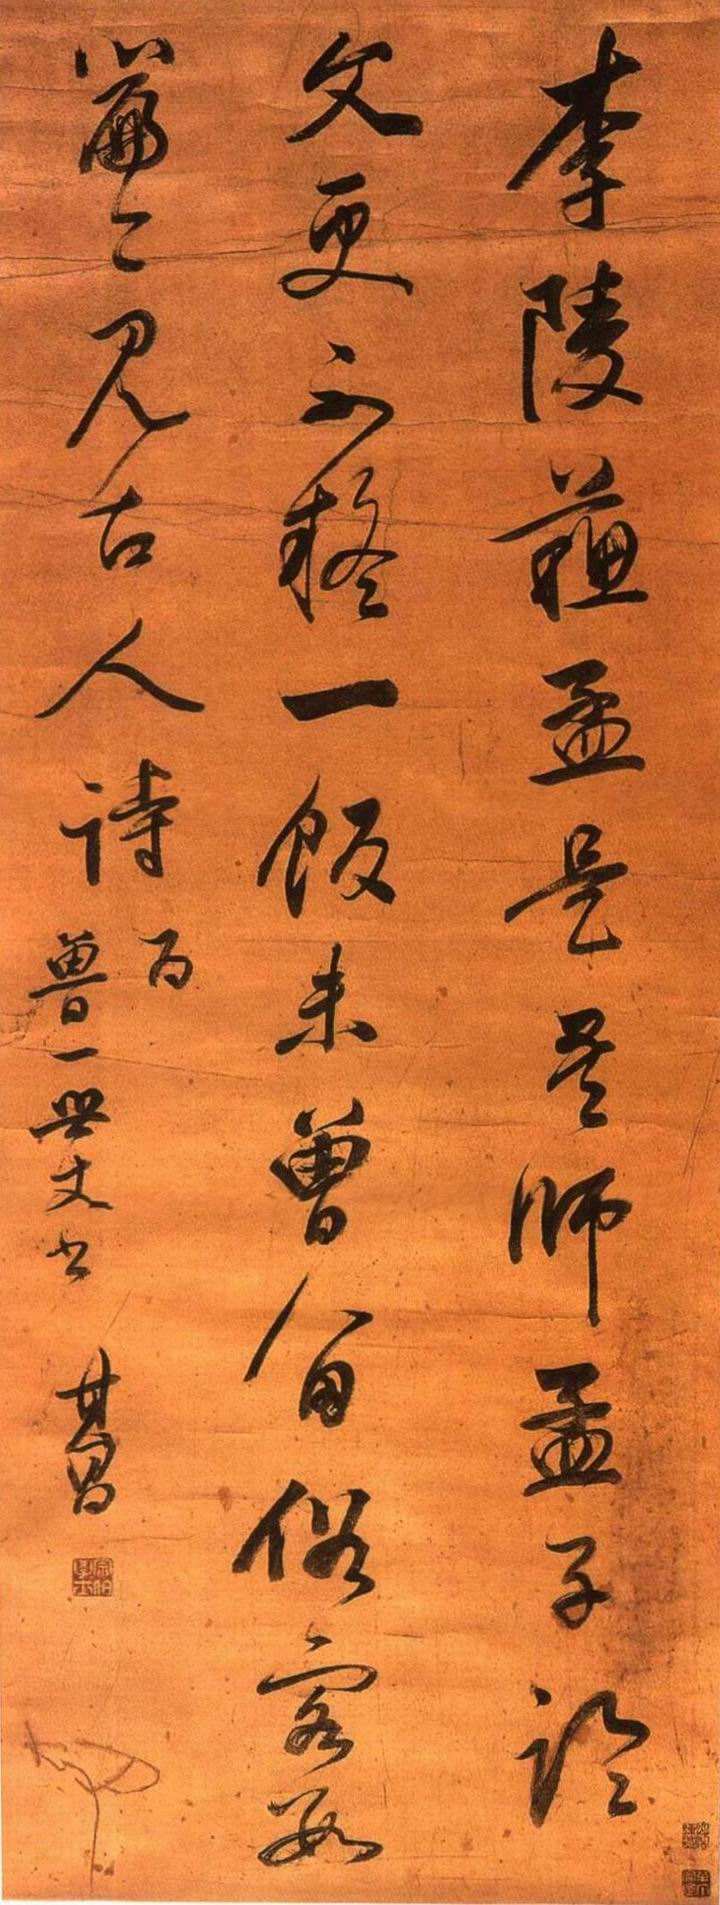 李陵蘇孟是吾師孟子論
文更不疑一飯未曾留俗客數
篇〻見古人詩
為
魯一兄丈書 其昌